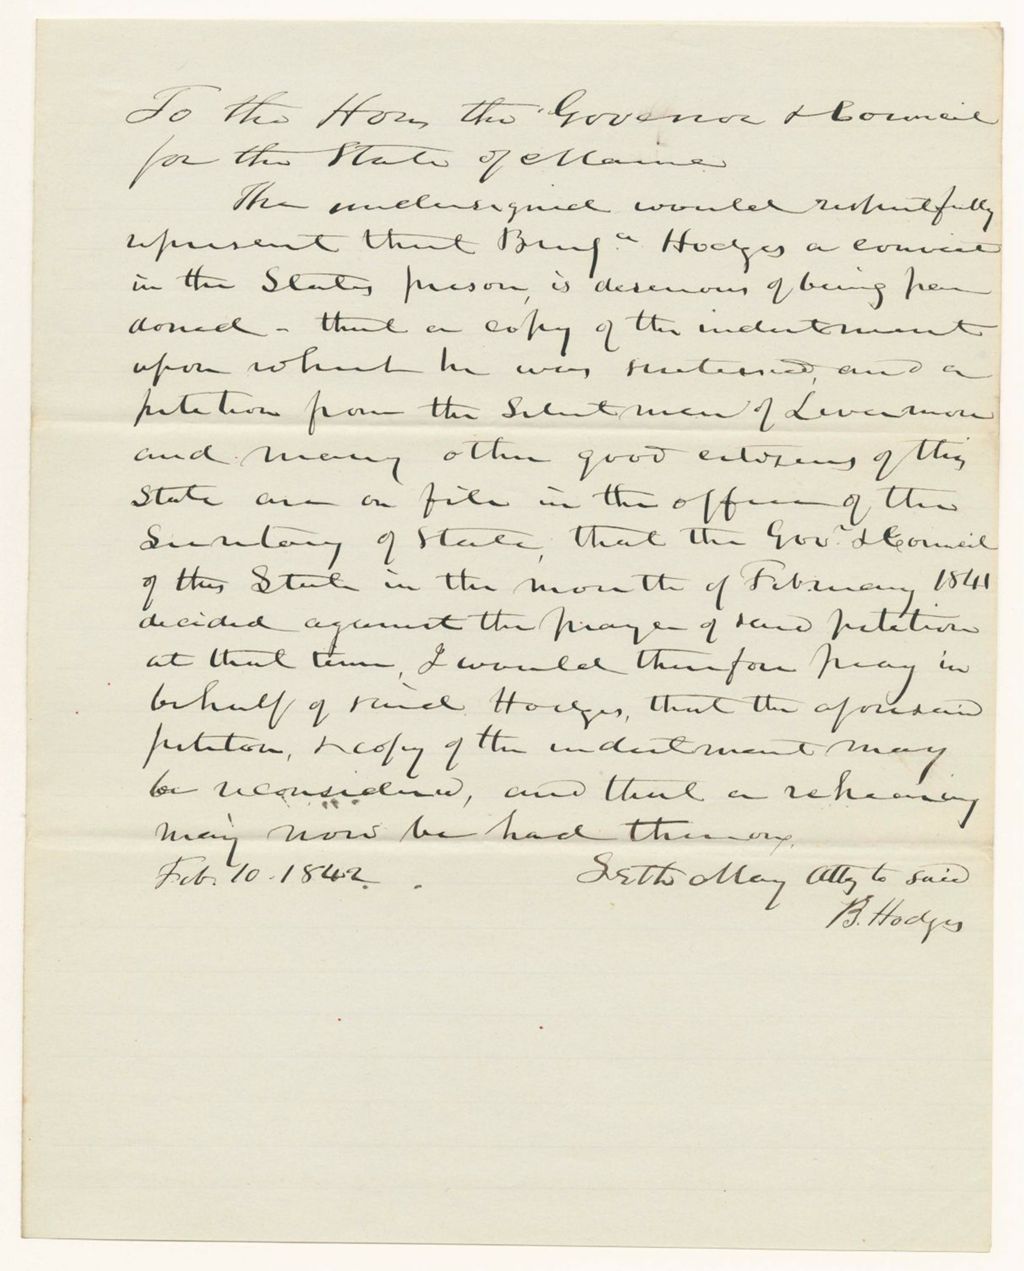 To the Hon. the Governor & Council
for the State of Maine
The undersigned would respectfully
represent that Benj.n Hodges a convict
in the States prison, is desierous of being par
doned - that a copy of the indictment
upon which he was sentensed, and a
petition from the Selectmen of Livermore
and many other good citizens of this
State are on file in the office of the
Secretary of State, that the Gov.r & Council
of this State in the month of February 1841
decided against the prayer of said petition
at that time, I would therefore pray in
behalf of said Hodges, that the aforesaid
petition, & copy of the indictment may
be reconsidered, and that a rehearing
may now be had thereon.
Feb. 10. 1842.
Seth May Atty to said
B. Hodges